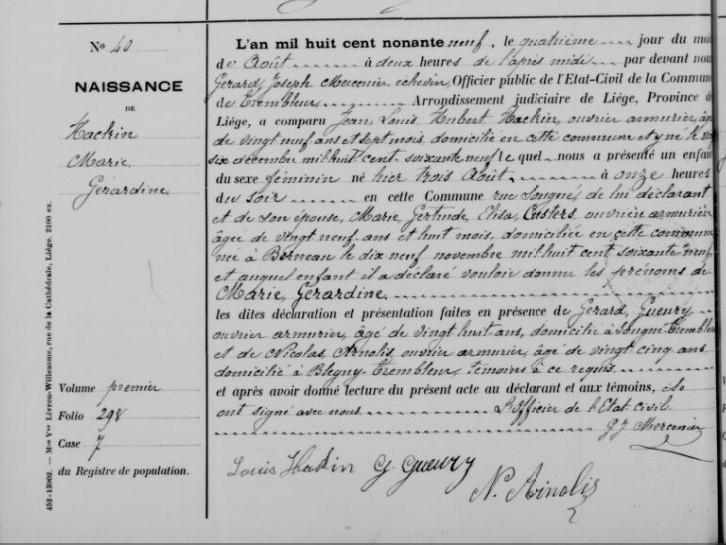 N° 40
NAISSANCE
DE
Hackin
Marie
Gérardine
Volume premier
Folio 298
Case 7
du Registre de population.
452-13062. — Mon Vve Livron-Willeaume, rue de la Cathédrale, Liége. 2100 ex.
L'an mil huit cent nonante neuf, le quatrième jour du mois
de Août à deux heures de l'après midi par devant nous
Gérard Joseph Mercenier, échevin, Officier public de l'Etat-Civil de la Commune
de Trembleur Arrondissement judiciaire de Liége, Province de
Liége, a comparu Jean Louis Hubert Hackin ouvrier armurier, âgé
de vingt neuf ans et sept mois, domicilié en cette commune et y né le vingt
six décembre mil huit cent soixante neuf, le quel nous a présenté un enfant
du sexe féminin né hier trois Août à onze heures
du soir en cette Commune rue Sougné, de lui déclarant
et de son épouse, Marie Gertrude Elisa, Custers, ouvrière armurière
âgée de vingt neuf ans et huit mois, domiciliée en cette commune
née à Berneau le dix neuf novembre mil huit cent soixante neuf
et auquel enfant il a déclaré vouloir donner les prénoms de
Marie, Gérardine.
les dites déclaration et présentation faites en présence de Gérard, Gueury
ouvrier armurier, âgé de vingt huit ans, domicilié à Trembleur
et de Nicolas Arnolis, ouvrier armurier, âgé de vingt cinq ans
domicilié à Blegny Trembleur, témoins à ce requis
et après avoir donné lecture du présent acte au déclarant et aux témoins, ils
ont signé avec nous L'Officier de l'Etat civil
G J Mercenier
Louis Hakin G. Gueury
N. Arnolis